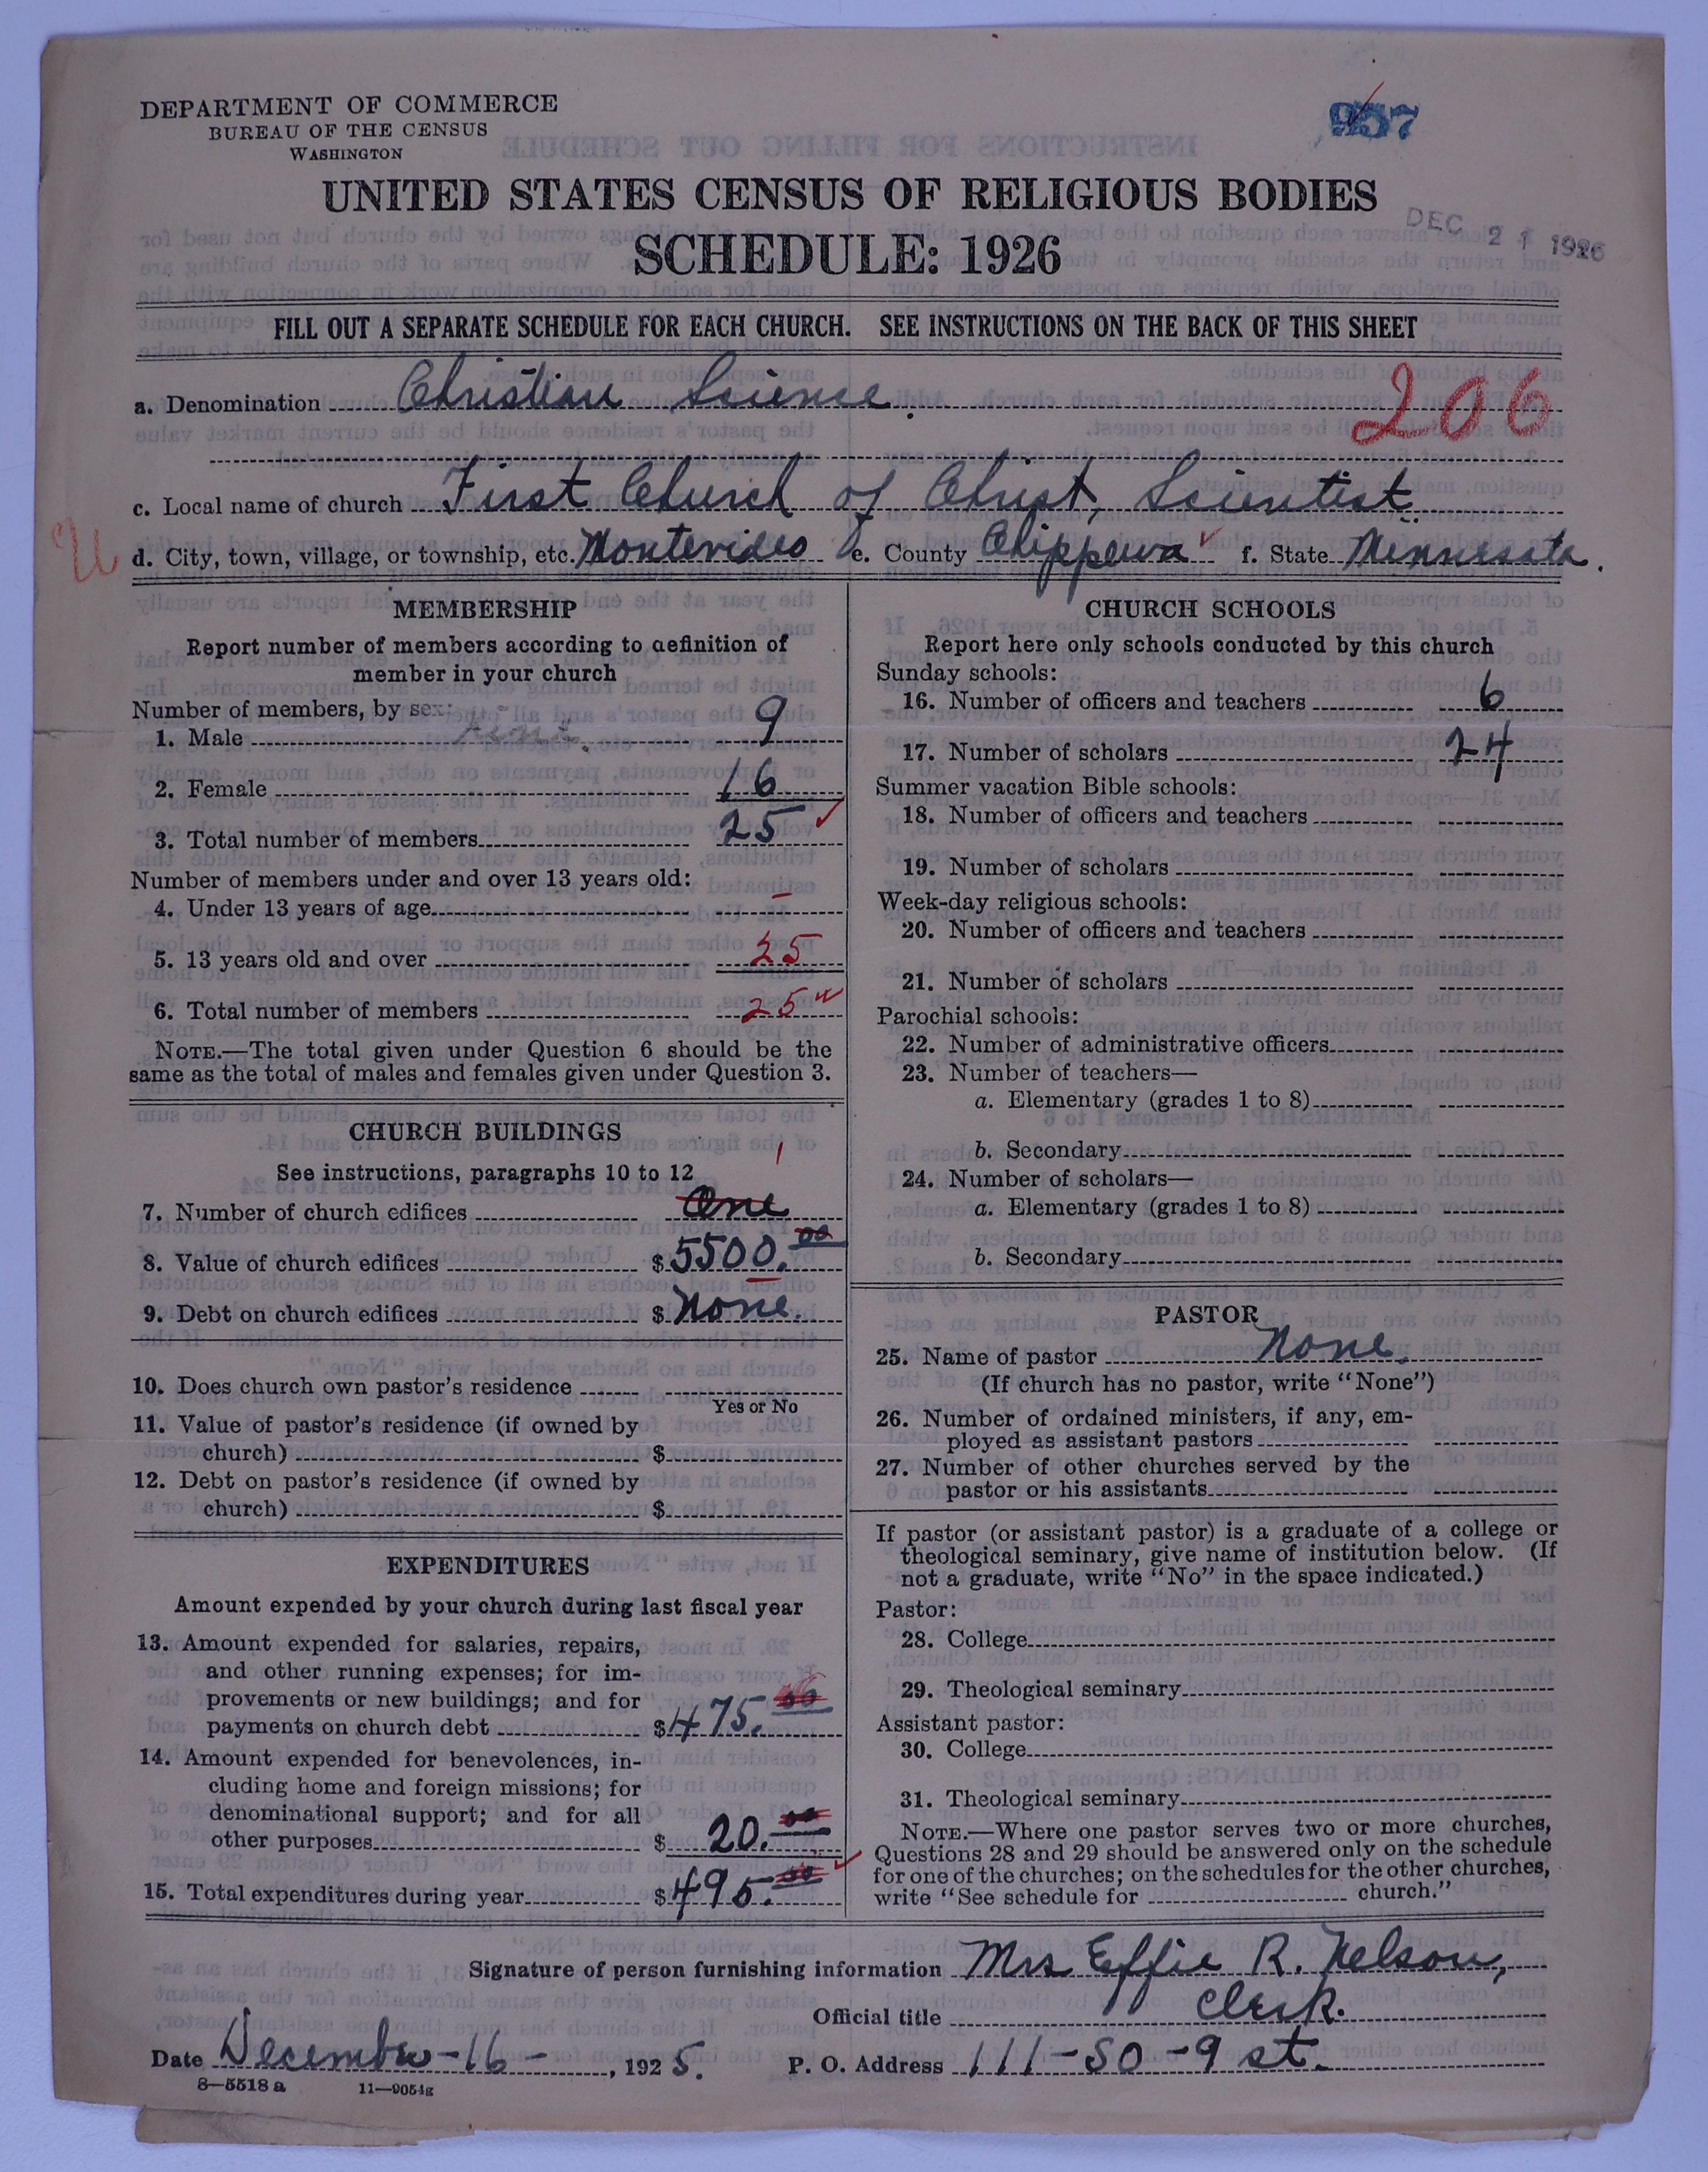 DEPARTMENT OF COMMERCE
BUREAU OF THE CENSUS
WASHINGTON
957
UNITED STATES CENSUS OF RELIGIOUS BODIES
SCHEDULE: 1926
DEC 21 1926
FILL OUT A SEPARATE SCHEDULE FOR EACH CHURCH. SEE INSTRUCTIONS ON THE BACK OF THIS SHEET
a. Denomination Christian Science.
206
c. Local name of church First Church of Christ, Scientist
U d. City, town, village, or township, etc. Montevideo e. County Chippewa f. State Minnesota.
MEMBERSHIP
Report number of members according to definition of
member in your church
Number of members, by sex:
1. Male 9
2. Female 16
3. Total number of members 25
Number of members under and over 13 years old:
4. Under 13 years of age –
5. 13 years old and over 25
6. Total number of members 25
NOTE.—The total given under Question 6 should be the
same as the total of males and females given under Question 3.
CHURCH BUILDINGS
See instructions, paragraphs 10 to 12
1
7. Number of church edifices One
8. Value of church edifices $5500.00
9. Debt on church edifices $None.
10. Does church own pastor's residence
Yes or No
11. Value of pastor's residence (if owned by
church) $
12. Debt on pastor's residence (if owned by
church) $
EXPENDITURES
Amount expended by your church during last fiscal year
13. Amount expended for salaries, repairs,
and other running expenses; for im-
provements or new buildings; and for
payments on church debt $475.00
14. Amount expended for benevolences, in-
cluding home and foreign missions; for
denominational support; and for all
other purposes $20.00
15. Total expenditures during year $495.00
CHURCH SCHOOLS
Report here only schools conducted by this church
Sunday schools:
16. Number of officers and teachers 6
17. Number of scholars 24
Summer vacation Bible schools:
18. Number of officers and teachers
19. Number of scholars
Week-day religious schools:
20. Number of officers and teachers
21. Number of scholars
Parochial schools:
22. Number of administrative officers
23. Number of teachers—
a. Elementary (grades 1 to 8)
b. Secondary
24. Number of scholars—
a. Elementary (grades 1 to 8)
b. Secondary
PASTOR
25. Name of pastor None.
(If church has no pastor, write "None")
26. Number of ordained ministers, if any, em-
ployed as assistant pastors
27. Number of other churches served by the
pastor or his assistants
If pastor (or assistant pastor) is a graduate of a college or
theological seminary, give name of institution below. (If
not a graduate, write "No" in the space indicated.)
Pastor:
28. College
29. Theological seminary
Assistant pastor:
30. College
31. Theological seminary
NOTE.—Where one pastor serves two or more churches,
Questions 28 and 29 should be answered only on the schedule
for one of the churches; on the schedules for the other churches,
write "See schedule for church."
Signature of person furnishing information Mrs Effie R. Nelson,
Official title Clerk.
Date December-16-, 1925. P. O. Address 111-SO-9 st.
8—5518 a 11—9051g